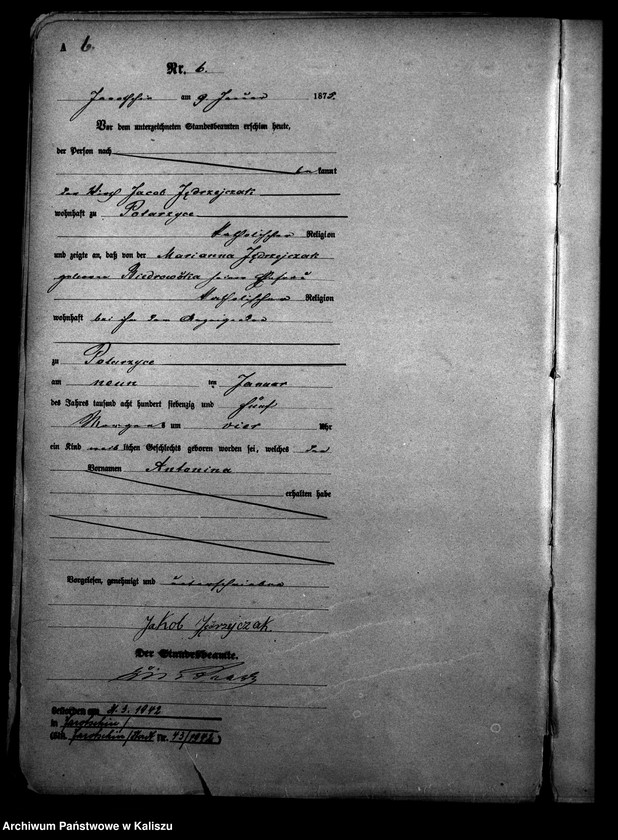 A 6.
Nr. 6.
Jarotschin am 9 Januar 1875.
Vor dem unterzeichneten Standesbeamten erschien heute,
der Person nach
bekannt
der Wirth Jacob Jędrzejczak
wohnhaft zu Potarzyce
katholischer Religion
und zeigte an, daß von der Marianna Jędrzejczak
geborene Biedrowska seiner Ehefrau
katholischer Religion
wohnhaft bei ihm dem Anzeigenden
zu Potarzyce
am neun ten Januar
des Jahres tausend acht hundert siebenzig und fünf
Morgens um vier Uhr
ein Kind weiblichen Geschlechts geboren worden sei, welches den
Vornamen Antonina
erhalten habe
Vorgelesen, genehmigt und unterschrieben
Jakob Jędrzejczak
Der Standesbeamte.
Gestorben am 4.3.1942
in Jarotschin
Jarotschin/Stadt Nr. 43/1942)
Archiwum Państwowe w Kaliszu